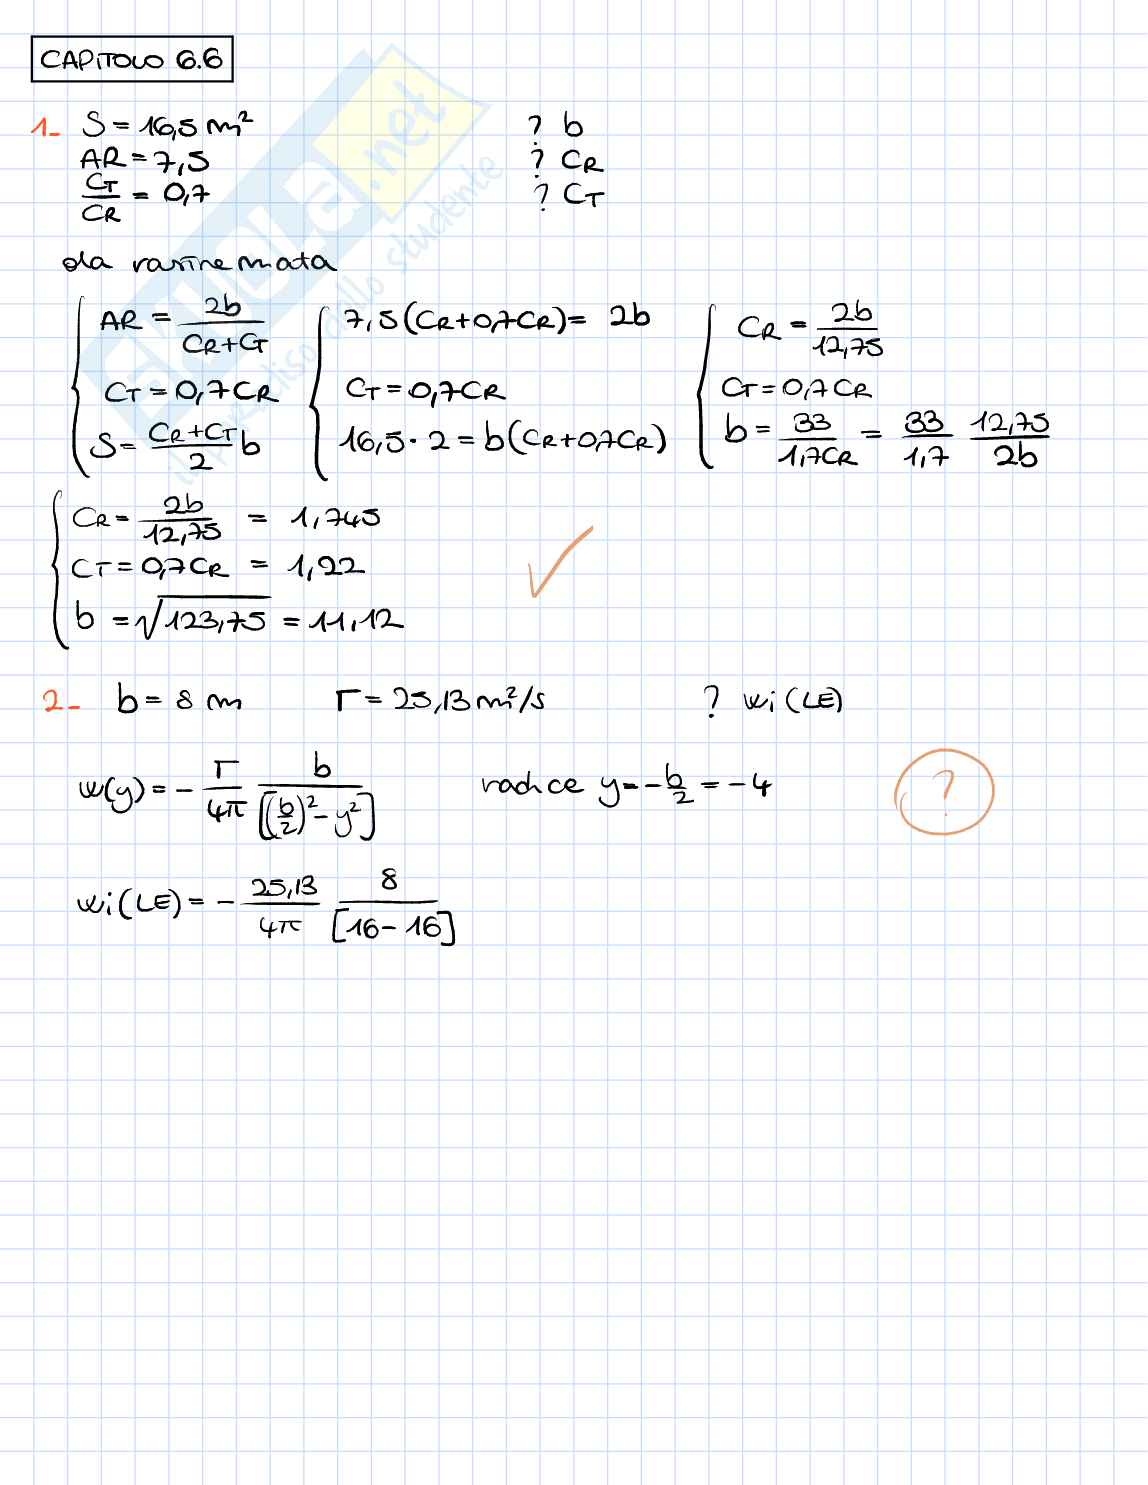 CAPITOLO 6.6
1- S = 16,5 m² ? b
AR = 7,5 ? CR
CT/CR = 0,7 ? CT
ala rastremata
AR = 2b/(CR+CT) 7,5(CR+0,7CR) = 2b CR = 2b/12,75
CT = 0,7CR CT = 0,7CR CT = 0,7CR
S = (CR+CT)/2 b 16,5 · 2 = b(CR+0,7CR) b = 33/1,7CR = 33/1,7 12,75/2b
CR = 2b/12,75 = 1,745
CT = 0,7CR = 1,22
b = √123,75 = 11,12
2- b = 8 m Γ = 25,13 m²/s ? wi (LE)
w(y) = - Γ/4π b/[(b/2)² - y²] radice y = -b/2 = -4 ?
wi (LE) = - 25,13/4π 8/[16 - 16]
SKUOLA.net
il paradiso dello studente